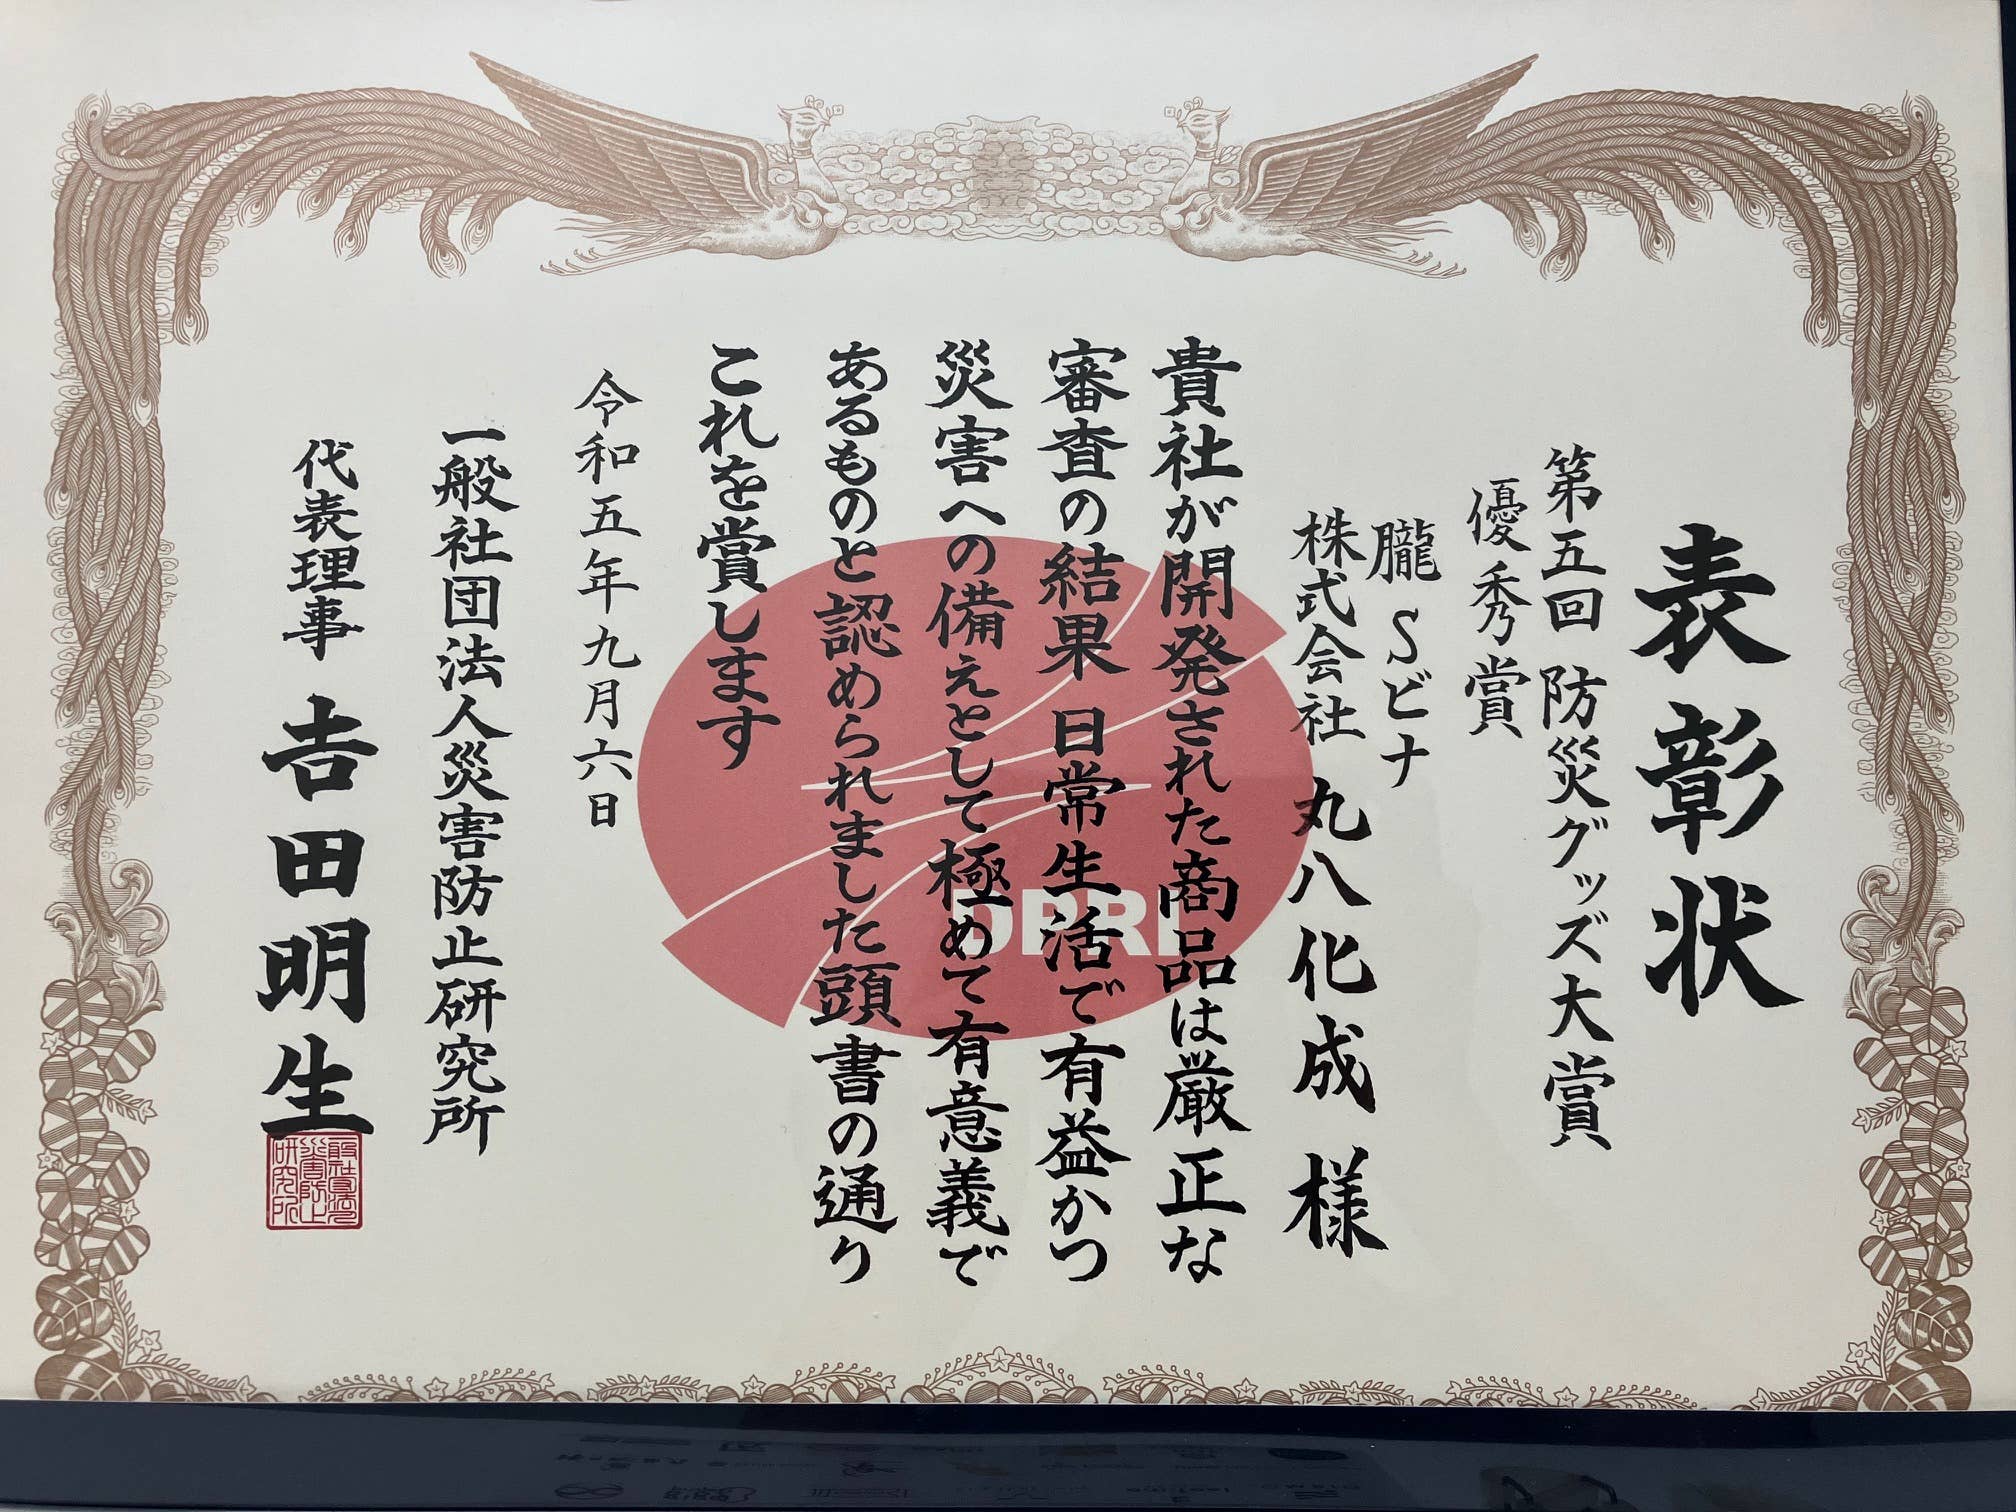 表彰状
第五回 防災グッズ大賞
優秀賞
朧 Sビナ
株式会社 丸八化成 様
貴社が開発された商品は厳正な
審査の結果 日常生活で有益かつ
災害への備えとして極めて有意義で
あるものと認められました頭書の通り
これを賞します
令和五年九月六日
一般社団法人災害防止研究所
代表理事 𠮷田明生
DPRI